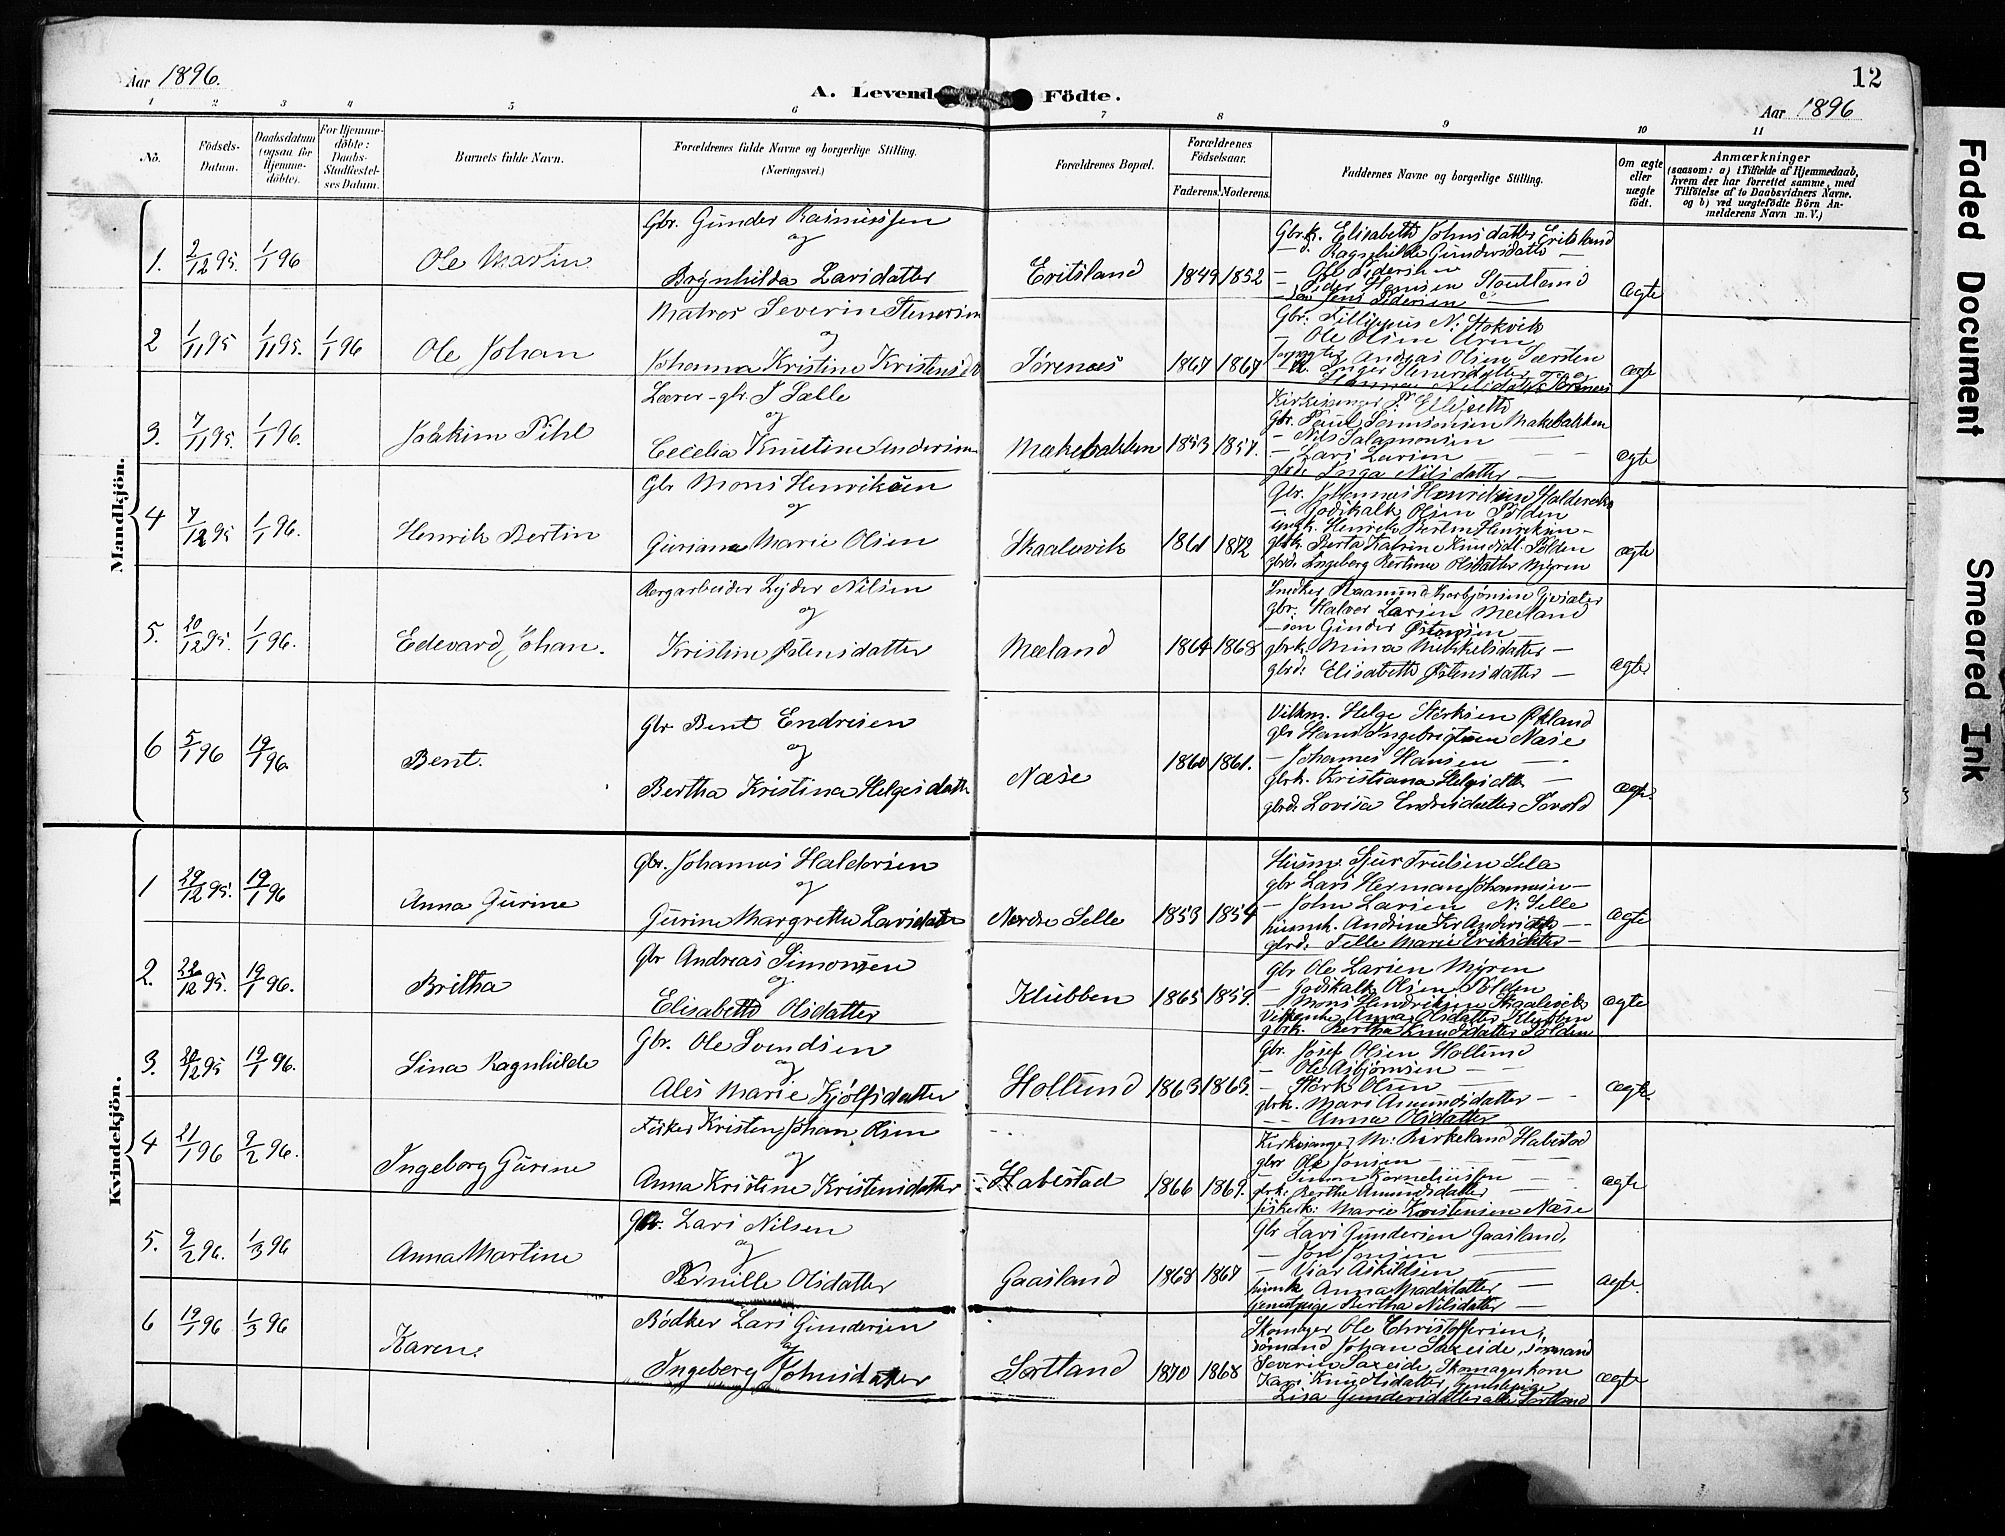 Aar 1896.
A. Levende Födte.
12
Aar 1896
1 2 3 4 5 6 7 8 9 10 11
No.
Födsels-Datum.
Daabsdatum (ogsaa for Hjemme-döbte).
For Hjemme-döbte: Daabs-Stadfæstel-ses Datum.
Barnets fulde Navn.
Forældrenes fulde Navne og borgerlige Stilling. (Næringsvei.)
Forældrenes Bopæl.
Forældrenes Födselsaar.
Faderens. Moderens.
Faddernes Navne og borgerlige Stilling.
Om ægte eller uægte födt.
Anmærkninger
(saasom: a) i Tilfælde af Hjemmedaab, hvem der har forrettet samme, med Tilföielse af to Daabsvidners Navne. og b) ved uægtefödte Börn Anmelderens Navn m. V.)
Mandkjön.
1. 2/12 95. 1/1 96 Ole Martin
Gbr. Gunder Rasmussen
og
Brynhilda Larsdatter
Eritsland 1849 1852
Gbrk. Elisabeth Johnsdatter Eritsland
— d. Ragnhilde Gundersdatter —
— Ole Pedersen
— Peder Hansen
Søn Jens Pedersen
ægte
2 1/11 95 1/11 95. 1/1 96 Ole Johan
Matros Severin Stenersen
og
Johanna Kristine Kristensd
Sørenæs 1867 1867
Gbr. Fillippus N. Stokvik
— Ole Olsen Uren
Andreas Olsen
Inger Stenersdatter
ægte
3. 7/11 95. 1/1 96. Joakim Pihl
Lærer-gbr. P Sælle
og
Cecelia Knutine Andersen
Makebakken 1853 1857.
Kirkesanger P. Ellefseth
Gbr. Paul Samsonsen Makebakken
— Nils Salamonsen —
— Lars Larsen — —
gbrd. Inga Nilsdatter —
ægte
4 7/12 95 1/1 96. Henrik Bertin
Gbr Mons Henriksen
og
Guriane Marie Olsen
Skaalevik 1861 1872
Gbr. Johannes Henriksen
— Godskalk Olsen Polden
Henrik Bertin Henriksen —
gbrk. Berta Katrine Knudsdt. Polden
gbrd. Ingeberg Bertine Olsdatter Myren
ægte
5. 20/12 95. 1/1 96. Edevard Johan.
Bergarbeider Lyder Nilsen
og
Kristine Østensdatter
Mæland 1864 1868
Snedker Raamund Torbjønsen
gbr. Halvor Larsen Mæland
— søn Gunder Østensen —
gbrk. Mina Mikkelsdatter —
gbrd. Elisabeth Østensdatter —
ægte
6 5/1 96 19/1 96. Bent.
Gbr Bent Endresen
og
Bertha Kristina Helgesdatter
Næse 1860 1861.
Vilkm. Helge Størksen Økland
gbr Hans Ingebrigtsen Næse
— Johannes Hansen —
gbrk. Kristiana Helgesdtr —
gbrd. Lovisa Endresdatter
ægte.
Kvindekjön.
1 29/12 95. 19/1 96 Anna Gurine
Gbr. Johannes Haldorsen
og
Gurine Margrethe Larsdatter
Nordre Selle 1853 1854
Husm. Sjur Trulsen Sela
gbr Lars Herman Johannesen —
— John Larsen N. Selle
husmk. Andrine Kr Andersdtr —
gbrd. Tille Marie Eriksdatter —
ægte
2. 22/12 95. 19/1 96. Britha
Gbr Andreas Simonsen
og.
Elisabeth Olsdatter
Klubben 1865 1859.
Gbr Ole Larsen Myren
— Godskalk Olsen Polden
— Mons Hendriksen Skaalevik
Anna Olsdatter Klubben
gbrk. Bertha Knudsdatter Polden
ægte
3. 22/12 95 19/1 96. Lina Ragnhilde
Gbr. Ole Svendsen
og
Ales Marie Kjølfsdatter
Hollund 1863 1863.
Gbr. Josef Olsen Hollund
— Ole Asbjørnsen — —
— Størk Olsen —
gbrk. Mari Amundsdatter —
— Anna Olsdatter
ægte.
4 21/1 96 9/2 96. Ingeborg Gurine
Fisker Kristen Johan Olsen
og
Anna Kristine Kristensdatter
Habestad 1866 1869.
Kirkesanger M. Birkeland Habestad
gbr Ole Jonsen —
— Simon Korneliussen —
gbrk. Berthe Amundsdatter —
fiskerk. Marie Kristensen Næse
ægte
5. 9/2 96. 1/3 96 Anna Martine
Gbr. Lars Nilsen
og
Pernille Olsdatter
Gaasland 1868 1867
Gbr Lars Gundersen Gaasland.
— Jon Jonsen —
— Viar Askildsen —
husmk Anna Madsdatter —
tjenestpige Bertha Nilsdatter —
ægte.
6 19/1 96 1/3 96 Karen.
Bødker Lars Gundersen
og
Ingeberg Johnsdatter
Sortland 1870 1868
Skomager Ole Christoffersen,
sømand Johan Saxeide, sømand
Severin Saxeide, Skomagerkone
Kari Knudsdatter,
Lisa Gundersdatter alle Sortland
ægte
Faded Document
Smeared Ink